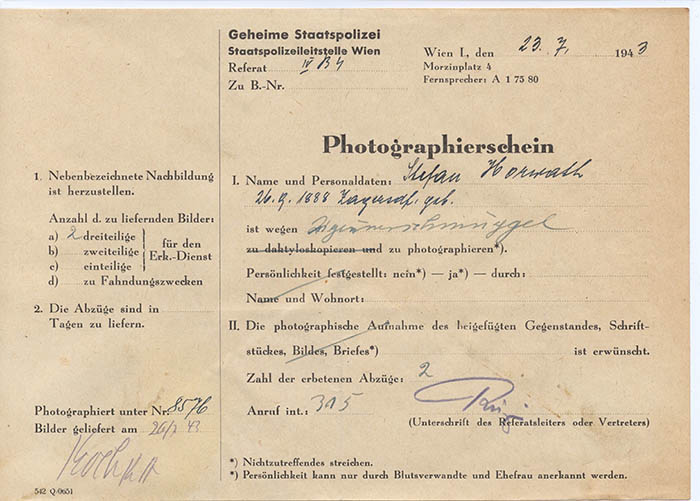 Geheime Staatspolizei
Staatspolizeileitstelle Wien
Referat IV B4
Zu B.-Nr.
Wien I., den 23. 7. 1943
Morzinplatz 4
Fernsprecher: A 1 75 80
Photographierschein
1. Nebenbezeichnete Nachbildung
ist herzustellen.
Anzahl d. zu liefernden Bilder:
a) 2 dreiteilige
b) zweiteilige
c) einteilige
für den
Erk.-Dienst
d) zu Fahndungszwecken
2. Die Abzüge sind in
Tagen zu liefern.
Photographiert unter Nr. 8576
Bilder geliefert am 26/7 43
I. Name und Personaldaten: Stefan Horwath
26. 9. 1888 geb.
ist wegen
zu daktyloskopieren und zu photographieren*).
Persönlichkeit festgestellt: nein*) — ja*) — durch:
Name und Wohnort:
II. Die photographische Aufnahme des beigefügten Gegenstandes, Schrift-
stückes, Bildes, Briefes*) ist erwünscht.
Zahl der erbetenen Abzüge: 2
Anruf int.: 315
(Unterschrift des Referatsleiters oder Vertreters)
*) Nichtzutreffendes streichen.
*) Persönlichkeit kann nur durch Blutsverwandte und Ehefrau anerkannt werden.
542 Q/0651